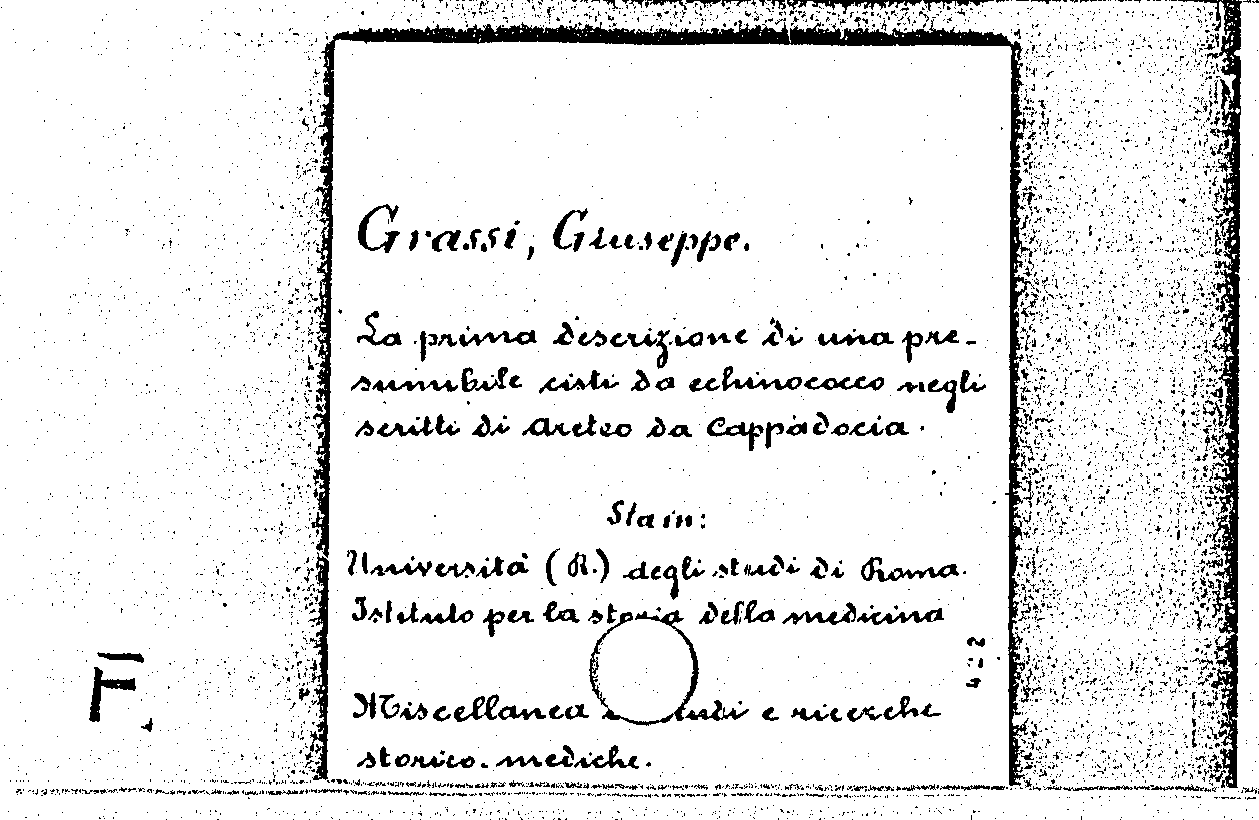 Grassi, Giuseppe.
La prima descrizione di una pre-
sumibile cisti da echinococco negli
scritti di Areteo da Cappadocia.
Sta in:
Università (R.) degli studi di Roma.
Istituto per la storia della medicina
Miscellanea studi e ricerche
storico-mediche.
F.